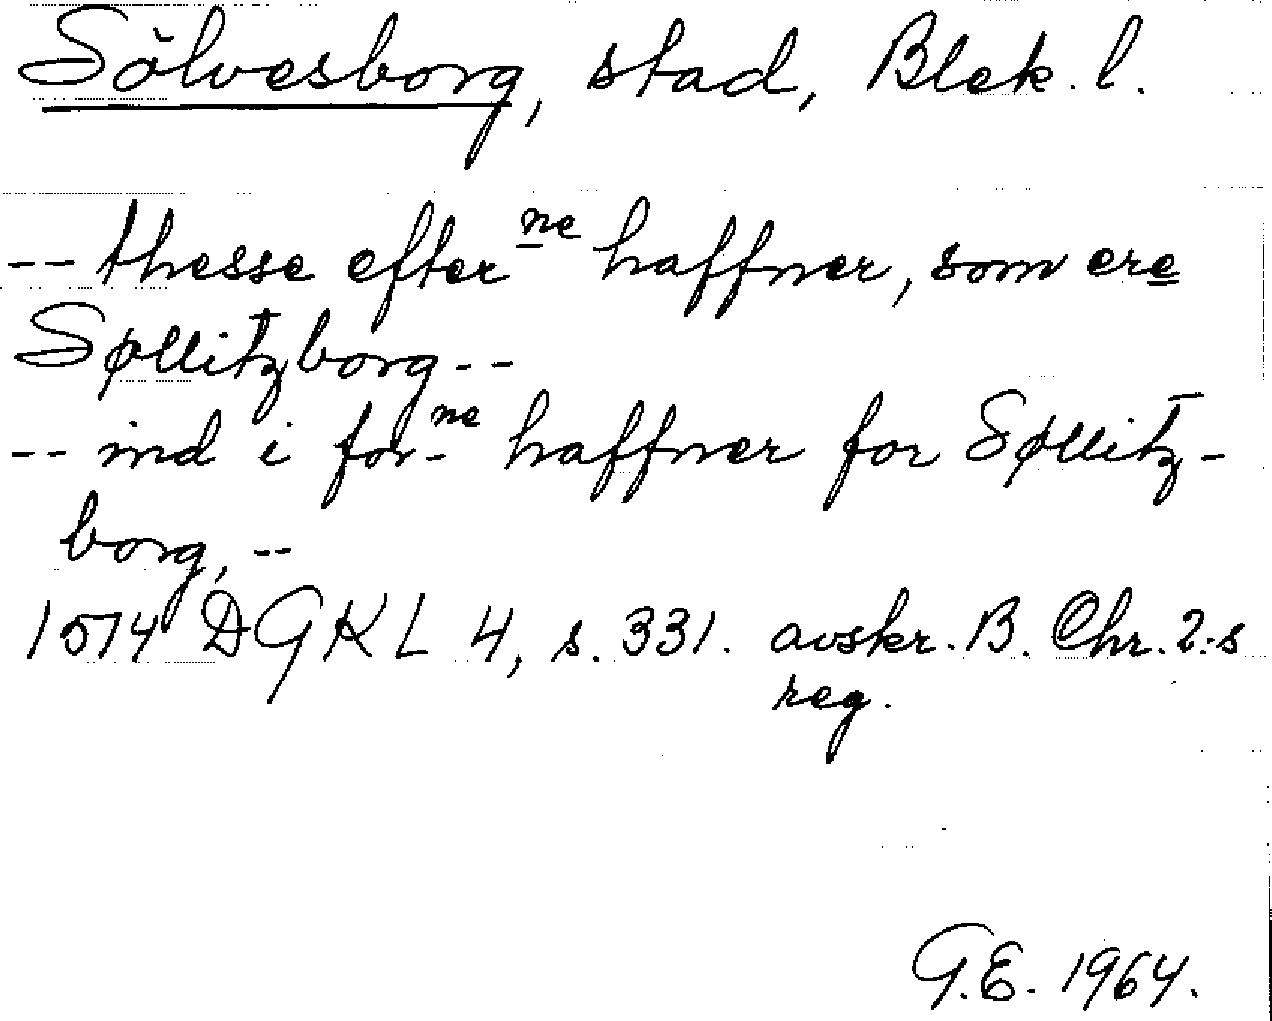 Sölvesborg, stad, Blek. l.
-- thesse efter ne haffner, som ere
Søllitzborg --
-- ind i for- ne haffner for Søllitz-
borg, --
1574 DGKL 4, s. 331. avskr. B. Chr. 2:s
reg.
G.E. 1964.